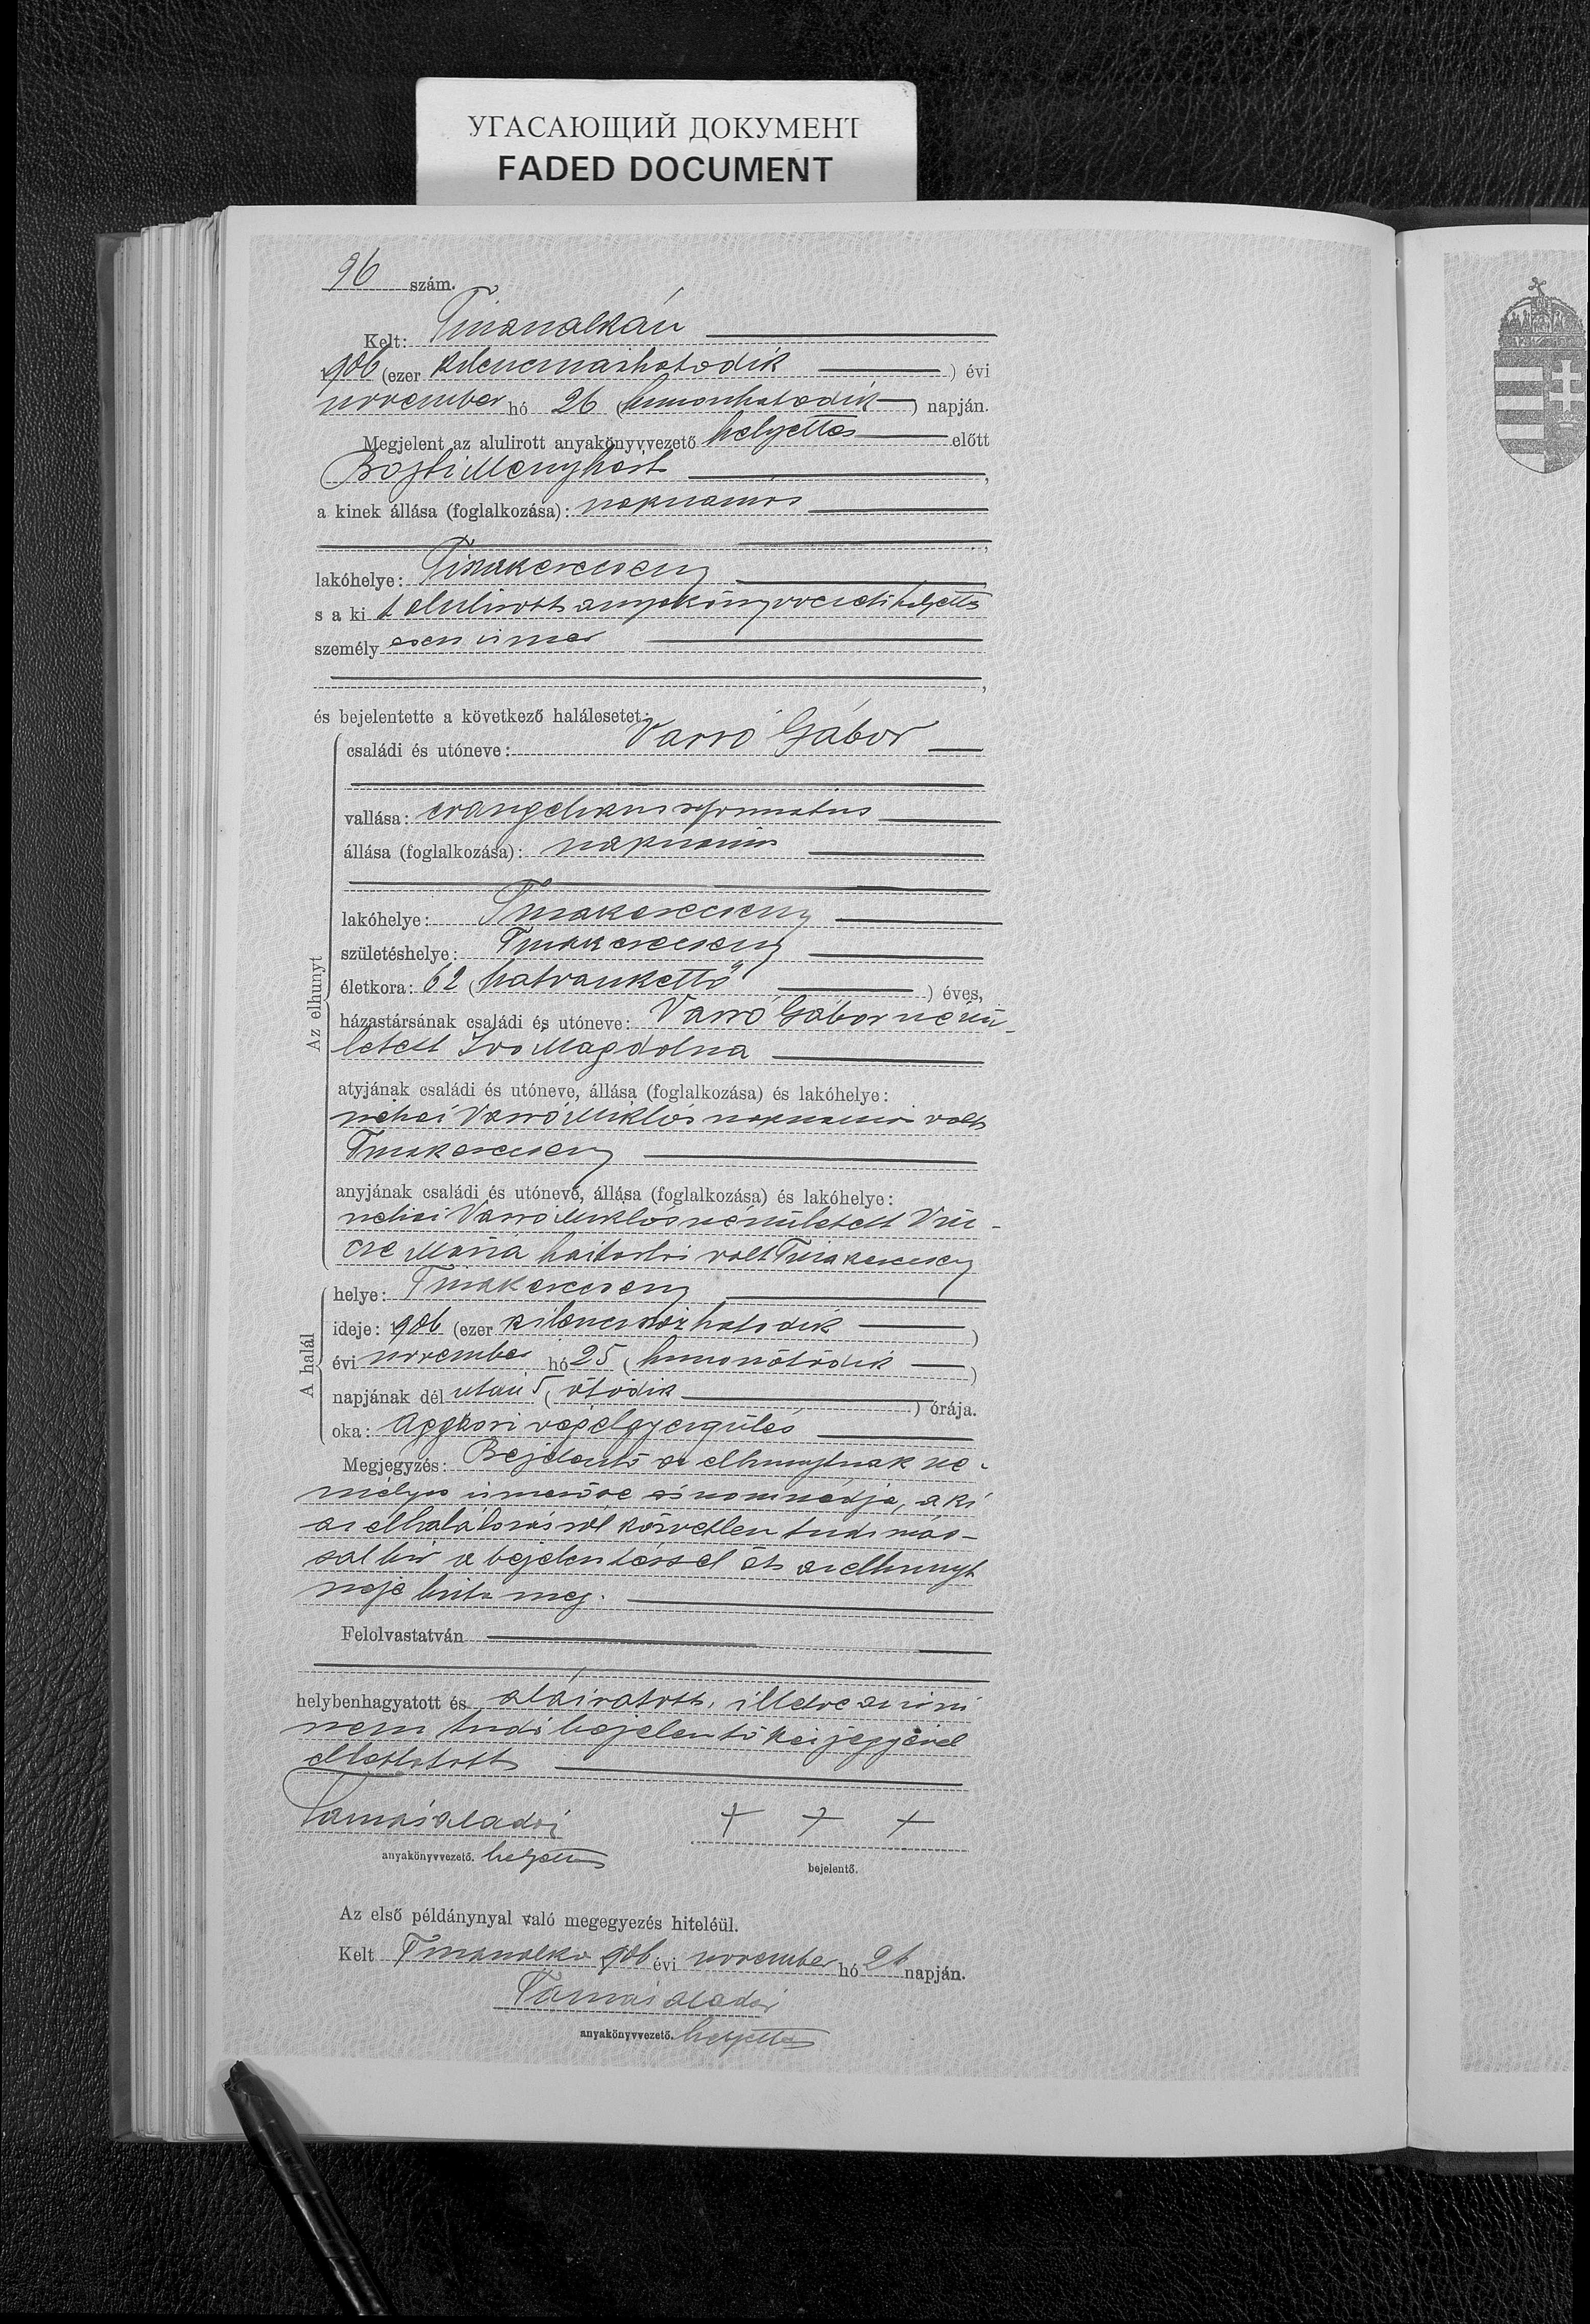 УГАСАЮЩИЙ ДОКУМЕНТ
FADED DOCUMENT
96 szám.
Kelt: Tiszaszalkán
1906 (ezer kilencszázhatodik) évi
november hó 26 (huszonhatodik) napján.
Megjelent az alulirott anyakönyvvezető helyettes előtt
Menyhért,
a kinek állása (foglalkozása): napszámos
lakóhelye: Tiszakerecseny
s a ki t alulirott anyakönyvvezető helyettes
személyesen ismer
és bejelentette a következő halálesetet:
Az elhunyt
családi és utóneve: Varró Gábor
vallása: evangelikus reformatus
állása (foglalkozása): napszámos
lakóhelye: Tiszakerecseny
születéshelye: Tiszakerecseny
életkora: 62 (hatvankettő) éves,
házastársának családi és utóneve: Varró Gáborné szü-
letett Magdolna
atyjának családi és utóneve, állása (foglalkozása) és lakóhelye:
néhai Varró Miklós napszámos volt
Tiszakerecseny
anyjának családi és utóneve, állása (foglalkozása) és lakóhelye:
néhai Varró Miklósné született Vin-
cze Mária háztartási volt Tiszakerecseny
A halál
helye: Tiszakerecseny
ideje: 1906 (ezer kilencszázhatodik)
évi november hó 25 (huszonötödik)
napjának dél utáni 5 (ötödik) órája.
oka: Aggkori végelgyengülés
Megjegyzés: Bejelentő az elhunytnak sze-
mélyes ismerőse szomszédja, a ki
az elhalálozásról közvetlen tudomás-
sal bir a bejelentéssel őt az elhunyt
neje bizta meg.
Felolvastatván
helybenhagyatott és aláiratott, illetve az irni
nem tudó bejelentő kézjegyével
elláttatott
Tamás Aladár + + +
anyakönyvvezető. helyettes bejelentő.
Az első példánynyal való megegyezés hiteléül.
Kelt Tiszaszalka 906 évi november hó 26 napján.
Tamás Aladár
anyakönyvvezető. helyettes